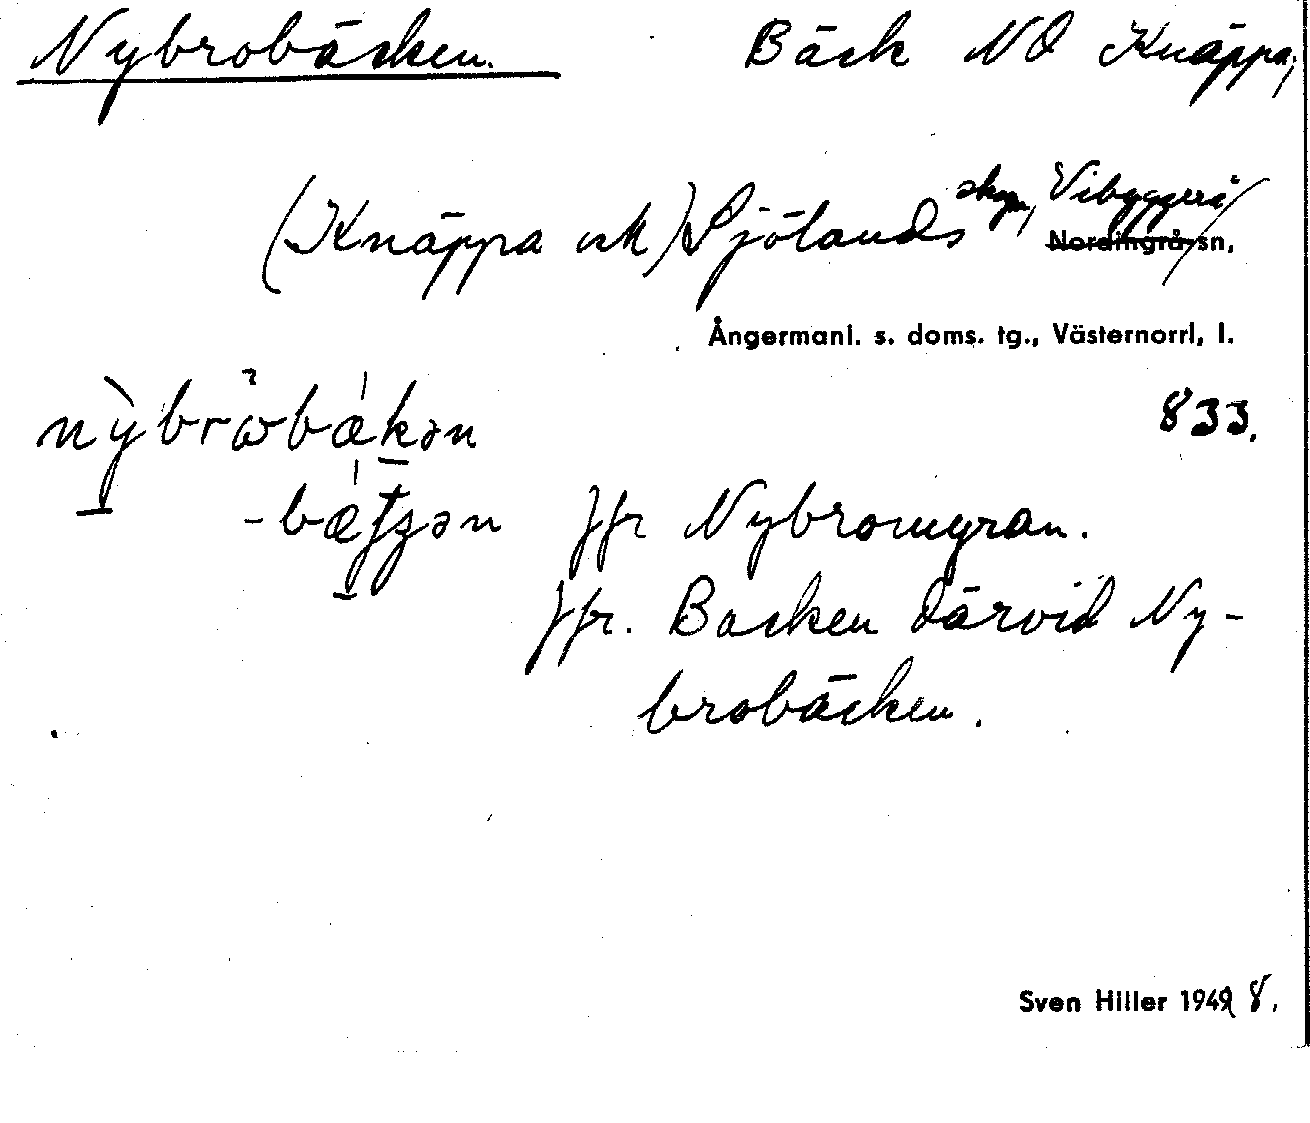 Nybrobäcken. Bäck NO Knäppa,
(Knäppa utk) Sjölands skgn, Vibyggerå
Nordingrå sn,
Ångermanl. s. doms. tg., Västernorrl. l.
833.
-bæ jfr Nybromyran.
Jfr. Backen därvid Ny-
brobäcken.
Sven Hiller 1948.